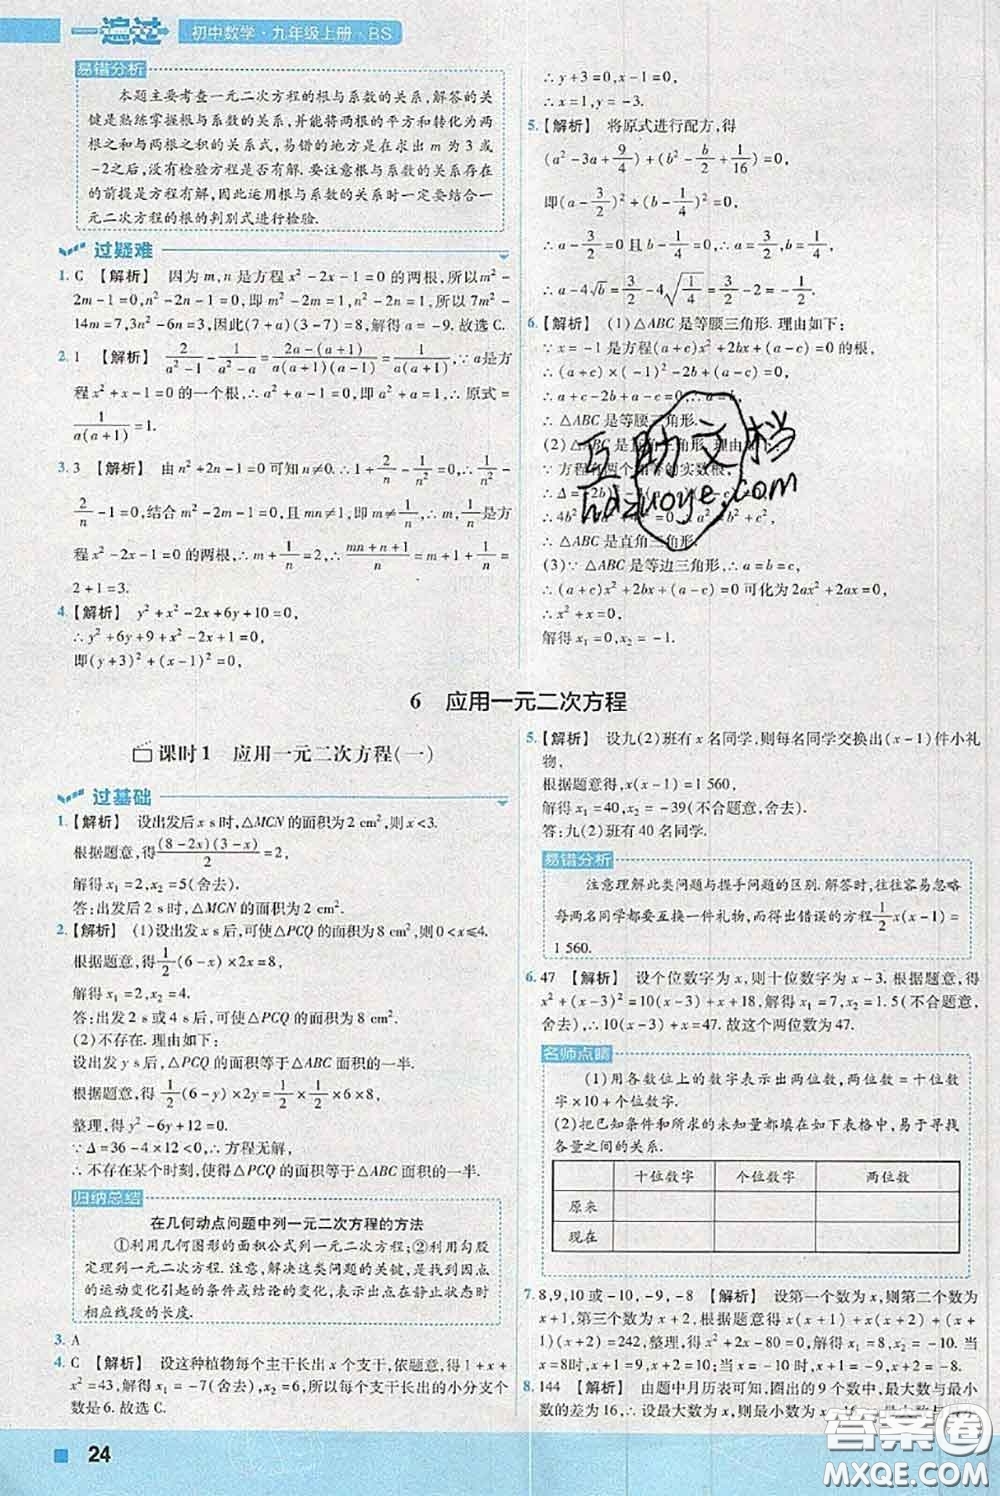 一遍过 初中数学·九年级上册·BS
易错分析
本题主要考查一元二次方程的根与系数的关系,解答的关
键是熟练掌握根与系数的关系,并能将两根的平方和转化为两
根之和与两根之积的关系式,易错的地方是在求出 m 为 3 或
-2之后,没有检验方程是否有解.要注意根与系数的关系存在
的前提是方程有解,因此运用根与系数的关系时一定要结合一
元二次方程的根的判别式进行检验.
过疑难
1. C 【解析】 因为 m,n 是方程 x²-2x-1=0 的两根,所以m²-
2m-1=0,n²-2n-1=0,即 m²-2m=1,n²-2n=1,所以7m²-
14m=7,3n²-6n=3,因此(7+a)(3-7)=8,解得 a=-9.故选 C.
2. 1 【解析】 2/(a²-1) - 1/(a²-a) = (2a-(a+1))/(a(a+1)(a-1)) = 1/(a(a+1)),∵a是方
程 x²+x-1=0 的一个根,∴a²+a-1=0,即 a²+a=1,∴原式=
1/(a(a+1))=1.
3. 3 【解析】 由 n²+2n-1=0 可知 n≠0.∴1+2/n-1/n²=0.∴1/n²-
2/n-1=0,结合 m²-2m-1=0,且 mn≠1,即 m≠1/n,∴m,1/n是方
程 x²-2x-1=0 的两根,∴m+1/n=2,∴(mn+n+1)/n=m+1+1/n=
2+1=3.
4. 【解析】 y²+x²-2x+6y+10=0,
∴y²+6y+9+x²-2x+1=0,
即(y+3)²+(x-1)²=0,
∴y+3=0,x-1=0,
∴x=1,y=-3.
5. 【解析】 将原式进行配方,得
(a²-3a+9/4)+(b²-b/2+1/16)=0,
即(a-3/2)²+(b-1/4)²=0,
∴a-3/2=0 且 b-1/4=0,
∴a=3/2,b=1/4,
∴a-4√b=3/2-4√(1/4)=3/2-2=-1/2.
6. 【解析】 (1)△ABC是等腰三角形. 理由如下:
∵x=-1是方程(a+c)x²+2bx+(a-c)=0的根,
∴(a+c)×(-1)²-2b+(a-c)=0,
∴a+c-2b+a-c=0,∴
∴△ABC 是等腰三角形.
(2)△ABC是直角三角形. 理由如下:
∵方程有两个相等的实数根,
∴
∴4b²
∴△ABC是直角三角形.
(3)∵△ABC是等边三角形,∴a=b=c,
∴(a+c)x²+2bx+(a-c)=0可化为2ax²+2ax=0,
∴x²+x=0,
解得 x₁=0,x₂=-1.
互助文档
hdzuoye.com
6 应用一元二次方程
课时1 应用一元二次方程(一)
过基础
1. 【解析】 设出发后x s时,△MCN 的面积为2 cm²,则x<3.
根据题意,得(8-2x)(3-x)/2=2,
解得 x₁=2,x₂=5(舍去).
答:出发后2 s时,△MCN 的面积为2 cm².
2. 【解析】 (1)设出发x s后,可使△PCQ的面积为8 cm²,则0<x≤4.
根据题意,得1/2(6-x)×2x=8,
解得 x₁=2,x₂=4.
答:出发2 s或4 s后,可使△PCQ的面积为8 cm².
(2)不存在. 理由如下:
设出发y s后,△PCQ 的面积等于△ABC 面积的一半.
根据题意,得1/2(6-y)×2y=1/2×1/2×6×8,
整理,得y²-6y+12=0.
∵Δ=36-4×12<0,∴方程无解,
∴不存在某个时刻,使得△PCQ的面积等于△ABC面积的一半.
归纳总结
在几何动点问题中列一元二次方程的方法
①利用几何图形的面积公式列一元二次方程;②利用勾股
定理列一元二次方程. 解决这类问题的关键,是找出因点
的运动变化引起的条件或结论的变化,并在静止状态时
相应线段的长度.
3. A
4. C 【解析】 设这种植物每个主干长出x个支干,依题意,得1+x+
x²=43,解得x₁=-7(舍去),x₂=6,∴这种植物每个支干长出的小分支个
数是6. 故选C.
5. 【解析】 设九(2)班有x名同学,则每名同学交换出(x-1)件小礼
物,
根据题意,得x(x-1)=1 560,
解得 x₁=40,x₂=-39(不合题意,舍去).
答:九(2)班有 40 名同学.
易错分析
注意理解此类问题与握手问题的区别.解答时,往往容易忽略
每两名同学都要互换一件礼物,而得出错误的方程1/2x(x-1)=
1 560.
6. 47 【解析】 设个位数字为x,则十位数字为x-3.根据题意,得
x²+(x-3)²=10(x-3)+x+18,解得x₁=7,x₂=1.5(不合题意,
舍去),∴10(x-3)+x=47.故这个两位数为47.
名师点睛
(1)用各数位上的数字表示出两位数,两位数=十位数
字×10+个位数字.
(2)把已知条件和所求的未知量都填在如下表格中,易于寻找
各量之间的关系.
十位数字 个位数字 两位数
原来
现在
7. 8,9,10 或-10,-9,-8 【解析】 设第一个数为x,则第二个数为
x+1,第三个数为x+2.根据题意,得x(x+1)+x(x+2)+(x+
1)(x+2)=242,整理,得x²+2x-80=0,解得x₁=8,x₂=-10.当
x=8时,x+1=9,x+2=10;当x=-10时,x+1=-9,x+2=-8.
8. 144 【解析】 由题中月历表可知,圈出的9个数中,最大数与最小
数的差为16,∴设最大数为x,
24
答案圈
MXQE.COM